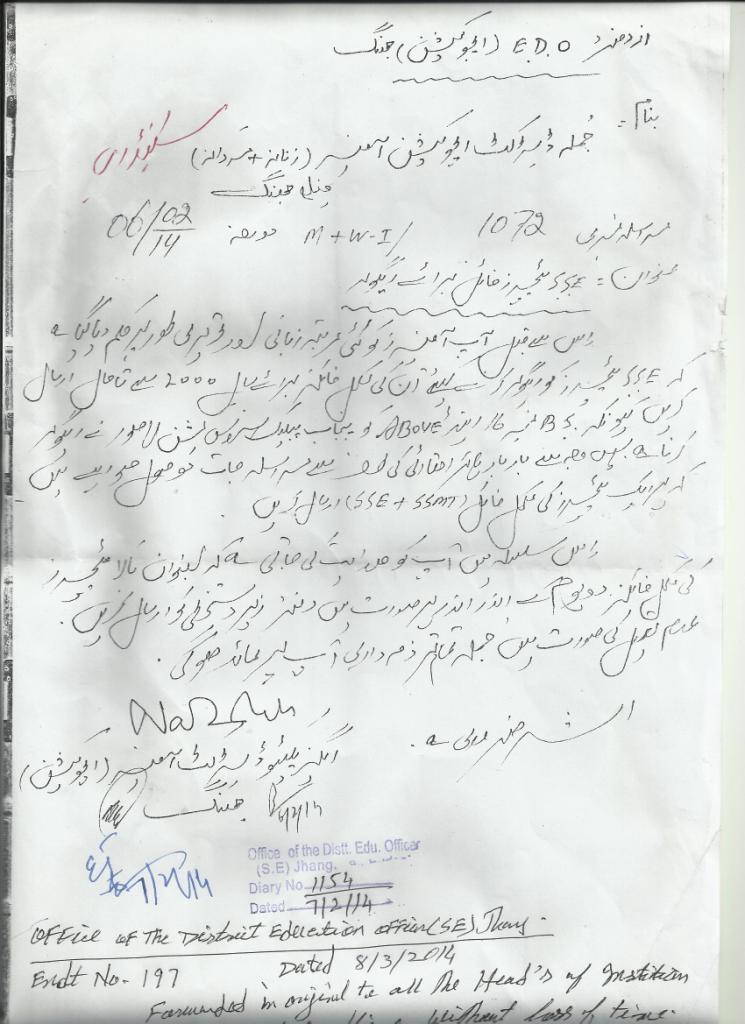 از دفتر E.D.O (ایجوکیشن) جھنگ
بنام:
جملہ ڈسٹرکٹ ایجوکیشن آفیسر (زنانہ + مردانہ)
سیکنڈری
ضلع جھنگ
مراسلہ نمبری 1072 / M+W-I مورخہ 06/02/14
عنوان: S.S.E ٹیچرز فائل برائے ریگولر
اس سے قبل آپ آفیسرز کو کئی مرتبہ زبانی اور تحریری طور پر حکم دیا گیا ہے
کہ S.S.E ٹیچرز کو ریگولر کرنے کیلئے ان کی مکمل فائلز برائے سال 2000 سے تاحال ارسال
کریں کیونکہ B.S نمبر 16 اینڈ ABOVE کو پنجاب پبلک سروس کمیشن لاہور نے ریگولر
کرنا ہے۔ اس وجہ سے بار بار ہائر اتھارٹی کی طرف سے مراسلہ جات موصول ہو رہے ہیں
کہ ہر ایک ٹیچرز کی مکمل فائل (SSE + SSMT) ارسال کریں۔
اس سلسلہ میں آپ کو ہدایت کی جاتی ہے کہ بعنوان بالا ٹیچرز
کی مکمل فائلز دو یوم کے اندر اندر ہر صورت میں دفتر زیر دستخطی کو ارسال کریں۔
عدم تعمیل کی صورت میں جملہ تمام تر ذمہ داری آپ پر عائد ہوگی۔
اشد ضروری ہے۔
ایگزیکٹیو ڈسٹرکٹ آفیسر (ایجوکیشن)
جھنگ
6/2/14
7/2/14
Office of the Distt. Edu. Officer
(S.E) Jhang.
Diary No. 1154
Dated 7/2/14
Office of The District Education officer (SE) Jhang.
Endt No. 197 Dated 8/3/2014
Forwarded in original to all the Head's of Institution
without loss of time.